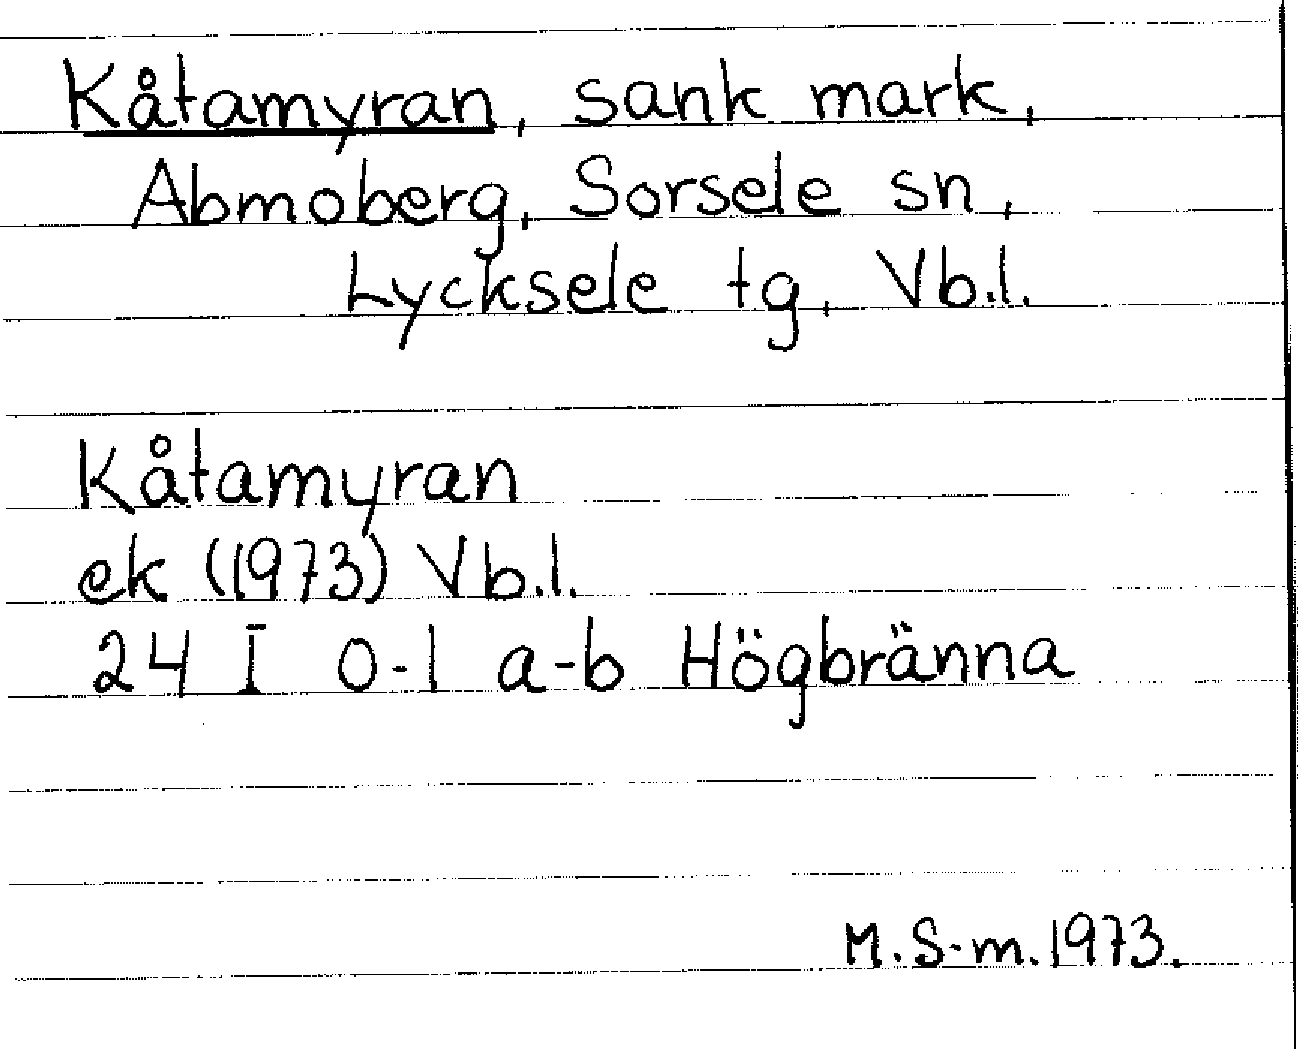 Kåtamyran, sank mark,
Abmoberg, Sorsele sn,
Lycksele tg, Vb.l.
Kåtamyran
ek (1973) Vb.l.
24 I 0-1 a-b Högbränna
M.S-m. 1973.